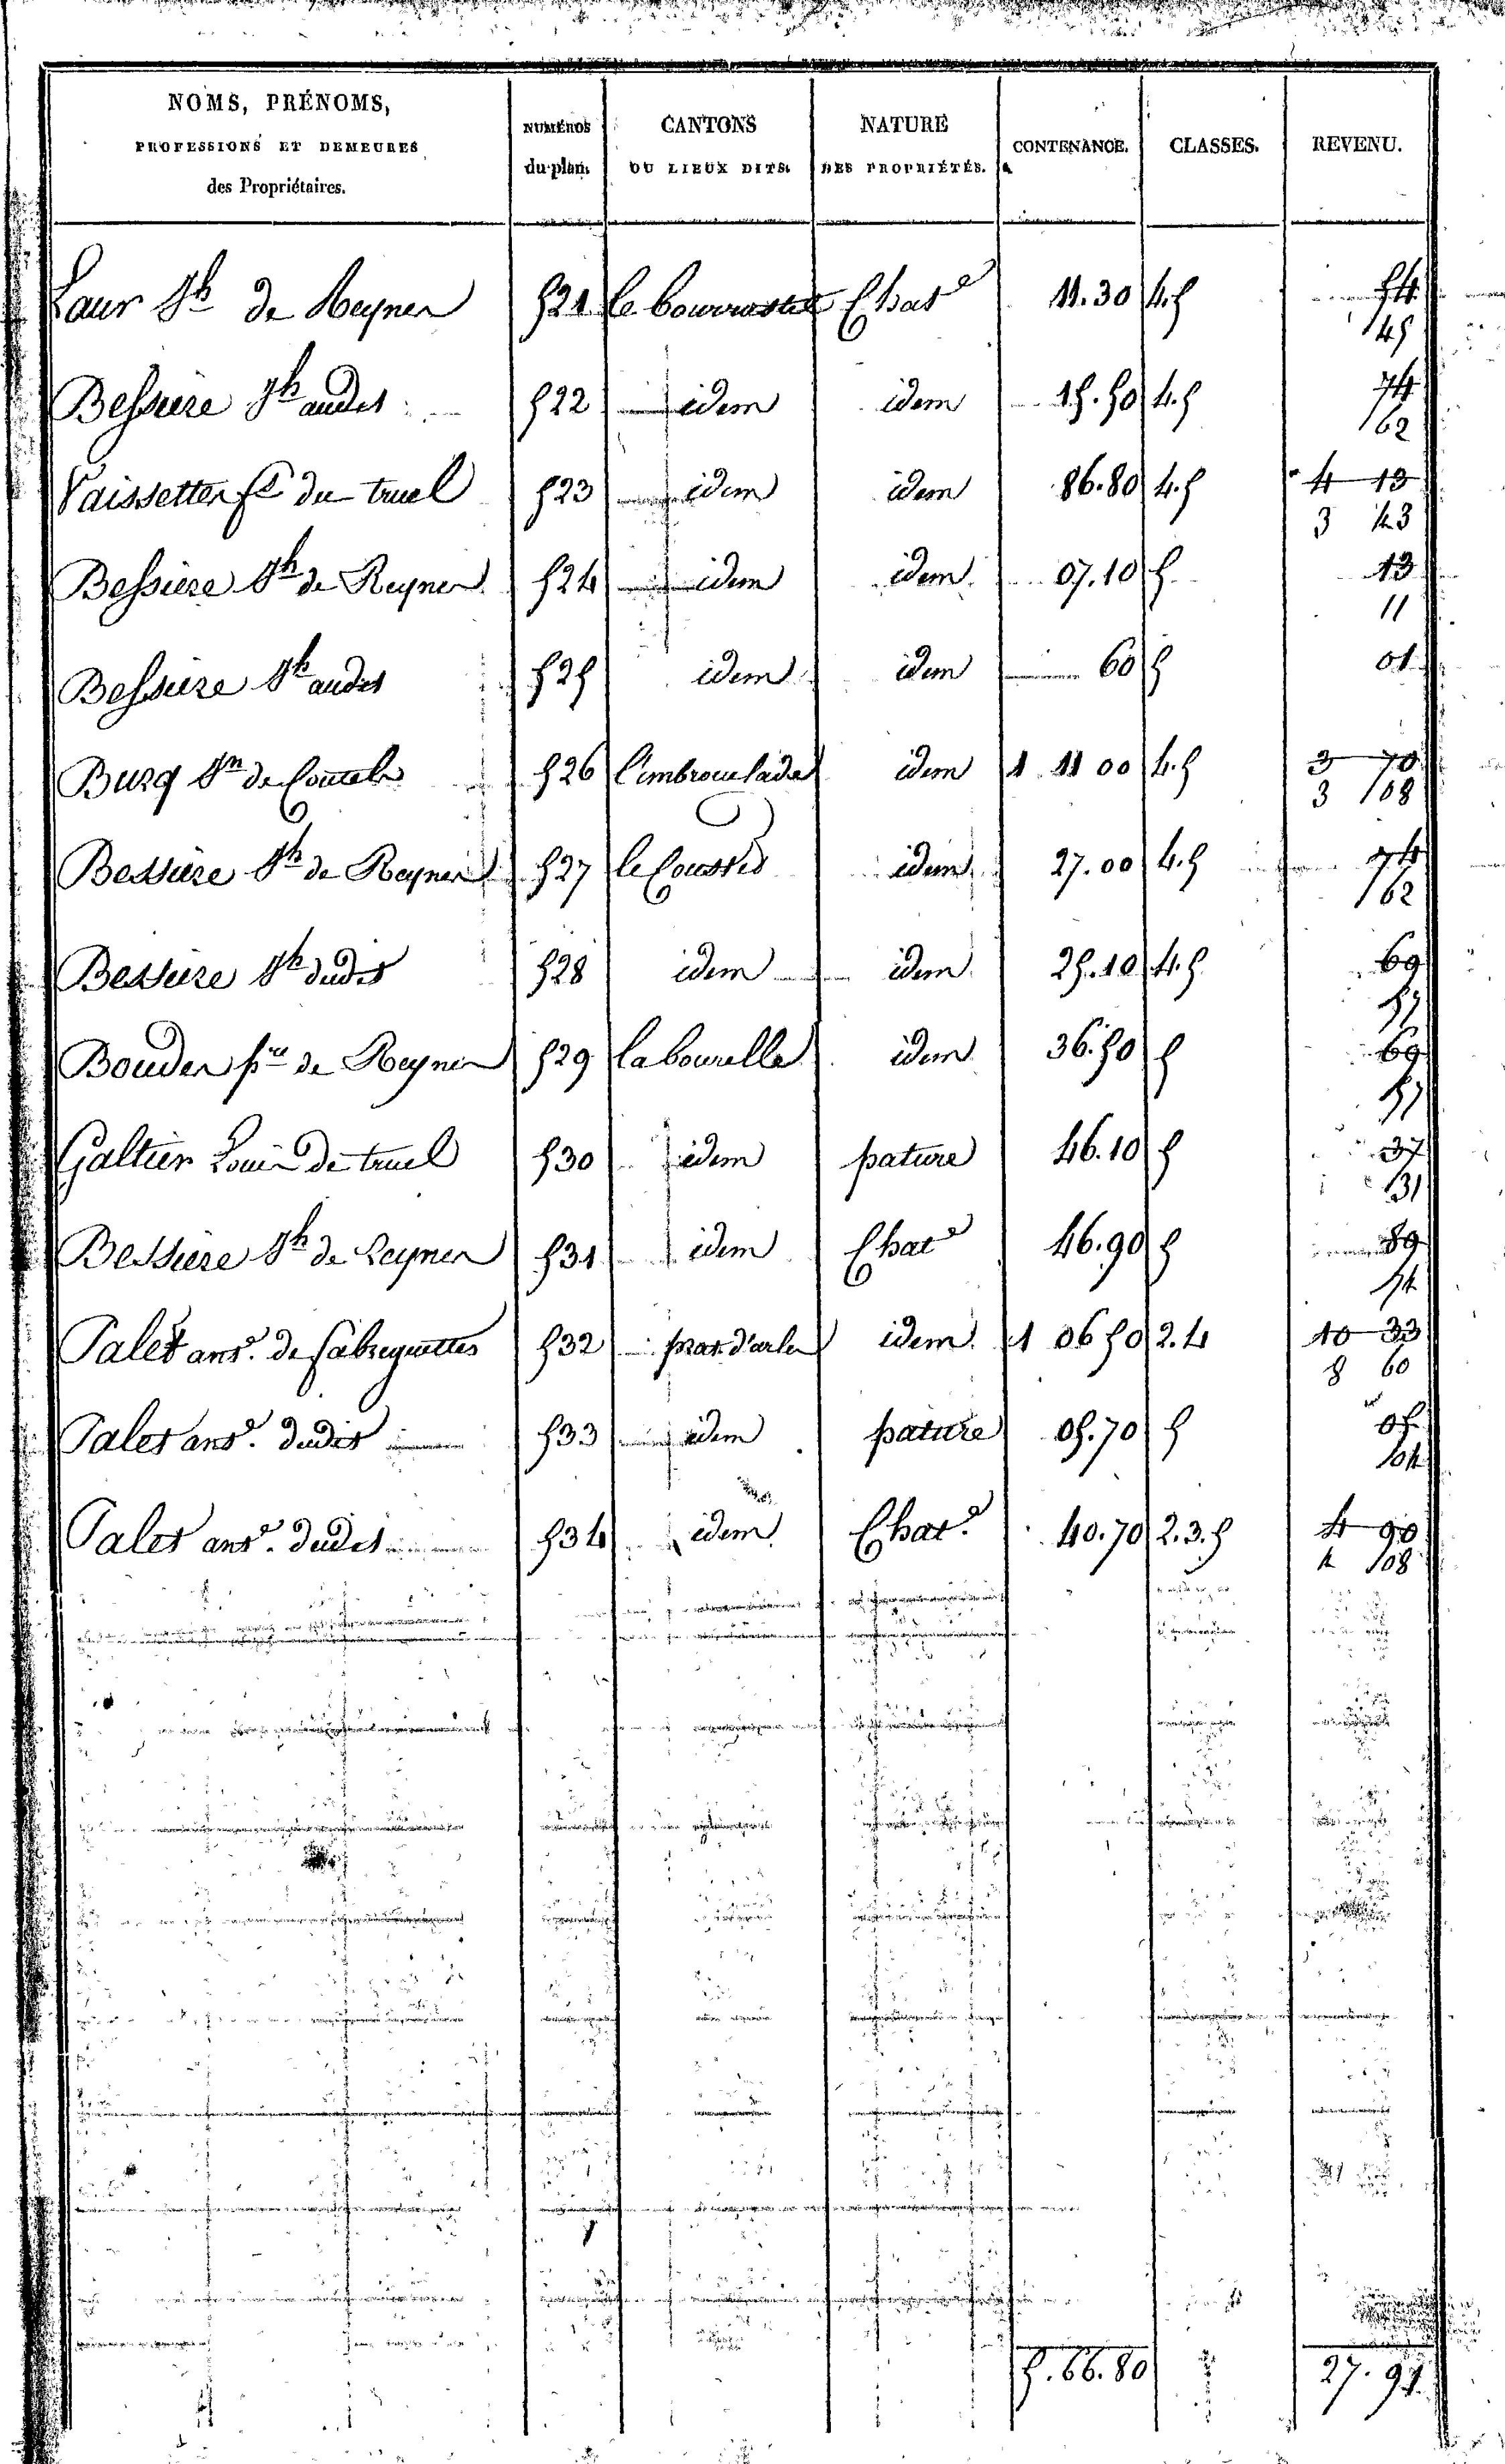 NOMS, PRÉNOMS,
PROFESSIONS ET DEMEURES
des Propriétaires.
NUMÉROS
du plan.
CANTONS
OU LIEUX DITS.
NATURE
DES PROPRIÉTÉS.
CONTENANCE.
CLASSES.
REVENU.
Laur Jh de Reynes 521 le Chate 11.30 4.5 54
45
Bessiere Jh audit 522 idem idem 15.50 4.5 74
62
Vaissettes du truel 523 idem idem 86.80 4.5 4 13
3 43
Bessiere Jh de Reynes 524 idem idem 07.10 5 13
11
Bessiere Jh audit 525 idem idem 60 5 01
Burg de 526 l'embroulade idem 1 11 00 4.5 3 70
3 08
Bessiere Jh de Reynes 527 le idem 27.00 4.5 74
62
Bessiere Jh dudit 528 idem idem 25.10 4.5 69
57
Boudes de Reynes 529 la bourelle idem 36.50 5 69
57
Galtier Louis de truel 530 idem pature 46.10 5 37
31
Bessiere Jh de Reynes 531 idem Chate 46.90 5 89
74
Palet ant. de fabreguettes 532 prat d'arles idem 1 06 50 2.4 10 33
8 60
Palet ant. dudit 533 idem pature 05.70 5 05
04
Palet ant. dudit 534 idem Chate 40.70 2.3.5 4 90
4 08
5.66.80 27.91